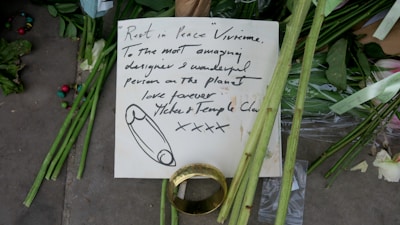 "Rest in Peace" Vivienne.
To the most amazing
designer & wonderful
person on the planet
love forever
Helen & Temple Clo
xxxx